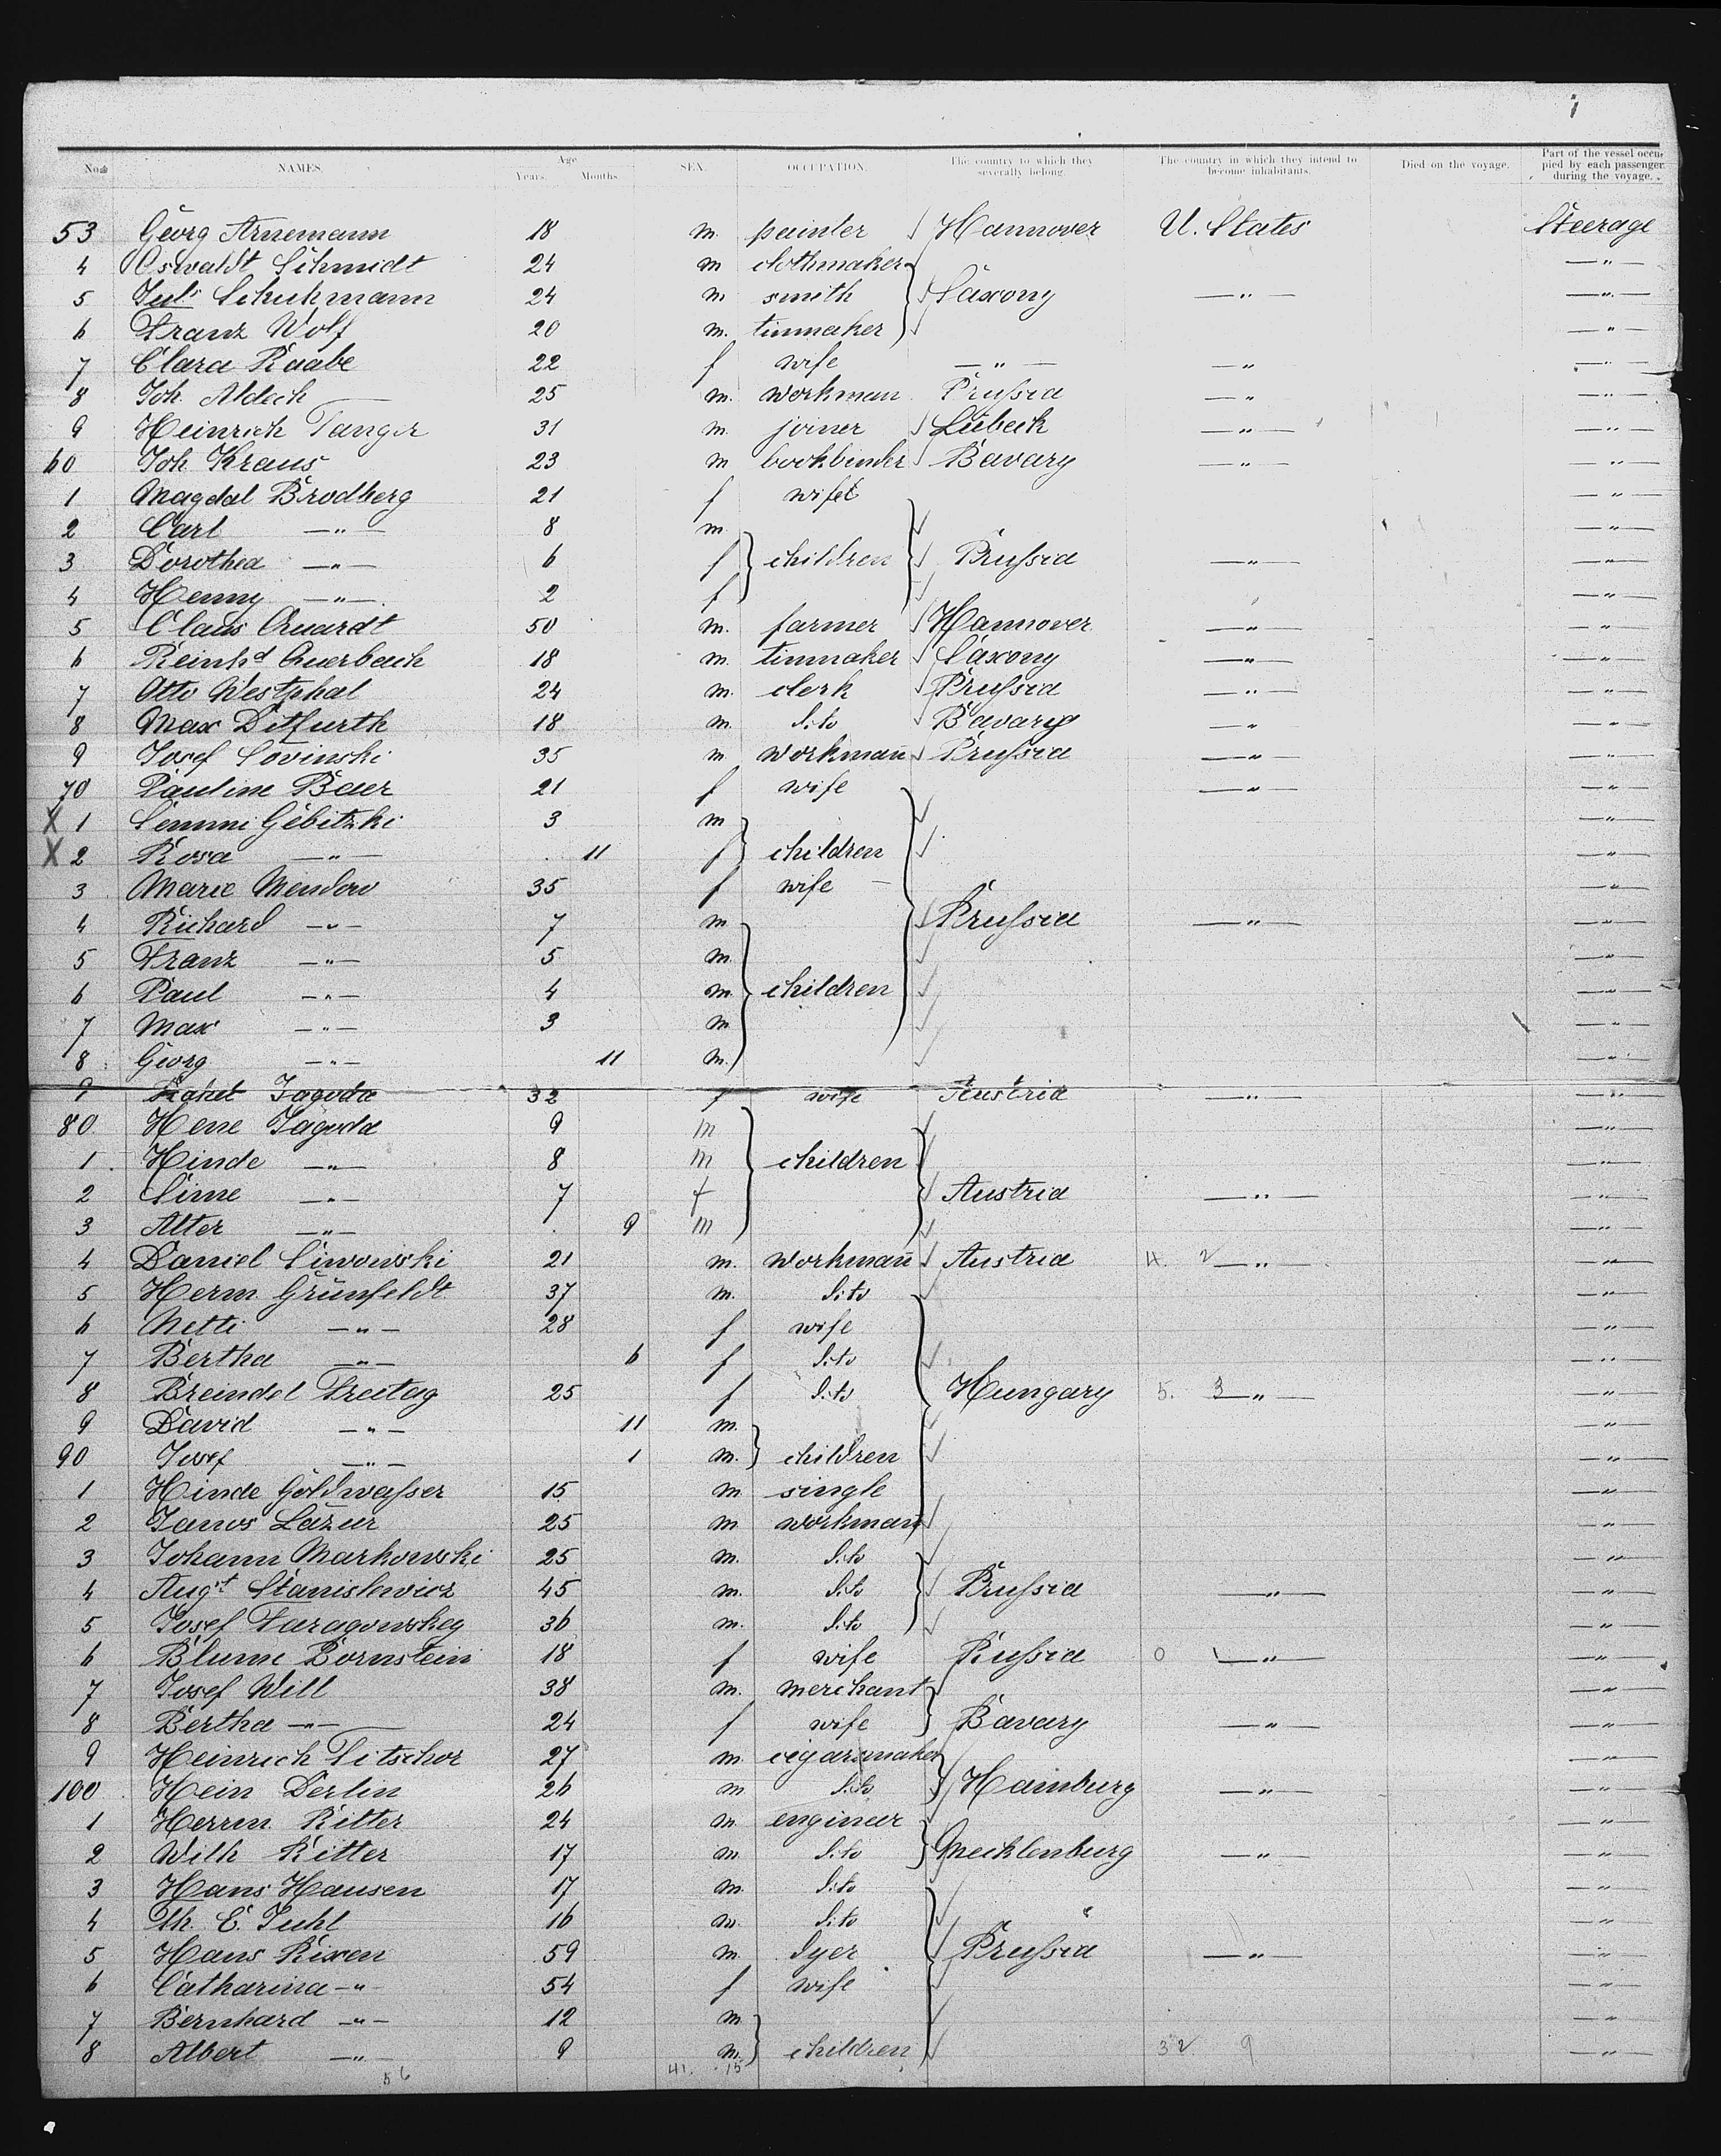 1
No. NAMES. Age Years. Months. SEX. OCCUPATION. The country to which they severally belong. The country in which they intend to become inhabitants. Died on the voyage. Part of the vessel occupied by each passenger during the voyage.
53 Georg Arnemann 18 m. painter Hannover U. States Steerage
4 Oswaldt Schmidt 24 m clothmaker —"—
5 Juls Schuhmann 24 m smith Saxony —"— —"—
6 Franz Wolf 20 m. tinmaker —"—
7 Clara Raabe 22 f wife —"— —"— —"—
8 Joh. Aldech 25 m. workman Prussia —"— —"—
9 Heinrich Tanger 31 m. joiner Lübeck —"— —"—
60 Joh Kraus 23 m bookbinder Bavary —"— —"—
1 Magdal Brodberg 21 f wife —"—
2 Carl —"— 8 m —"—
3 Dorothea —"— 6 f children Prussia —"— —"—
4 Henny —"— 2 f —"—
5 Claus Quardt 50 m. farmer Hannover —"— —"—
6 Reinhd Auerbach 18 m. tinmaker Saxony —"— —"—
7 Otto Westphal 24 m. clerk Prussia —"— —"—
8 Max Ditfurth 18 m. dito Bavary —"— —"—
9 Josef Sovinski 35 m workman Prussia —"— —"—
70 Pauline Baer 21 f wife —"— —"—
X 1 Semmi Gebitzki 3 m —"—
X 2 Rosa —"— 11 f children —"—
3 Marie Mendow 35 f wife —"—
4 Richard —"— 7 m Prussia —"— —"—
5 Franz —"— 5 m. —"—
6 Paul —"— 4 m. children —"—
7 Max —"— 3 m —"—
8 Georg —"— 11 m. —"—
9 Rahel Jagoda 32 f wife Austria —"— —"—
80 Hene Jagoda 9 m —"—
1 Hinde —"— 8 m children —"—
2 Sime —"— 7 f Austria —"— —"—
3 Alter —"— 9 m —"—
4 Daniel Siwowski 21 m. workman Austria 4. 2 —"— —"—
5 Herm. Grünfeldt 37 m. dito —"—
6 Netti —"— 28 f wife —"—
7 Bertha —"— 6 f dito —"—
8 Breindel Freitag 25 f dito Hungary 5. 3 —"— —"—
9 David —"— 11 m. —"—
90 Josef —"— 1 m. children —"—
1 Hinde Goldwasser 15 m single —"—
2 Janos Lazur 25 m workman —"—
3 Johann Markowski 25 m. dito —"—
4 Augt Stanislewicz 45 m. dito Prussia —"— —"—
5 Josef Faragowskey 36 m. dito —"—
6 Blume Bornstein 18 f wife Russia 0 —"— —"—
7 Josef Will 38 m. merchant —"—
8 Bertha —"— 24 f wife Bavary —"— —"—
9 Heinrich Titschor 27 m. cigarmaker —"—
100 Hein Derlin 26 m dito Hamburg —"— —"—
1 Herrm. Ritter 24 m. engineer —"—
2 Wilh Ritter 17 m. dito Mecklenburg —"— —"—
3 Hans Hansen 17 m. dito —"—
4 Th. E. Juhl 16 m. dito —"—
5 Hans Rixen 59 m. dyer Prussia —"— —"—
6 Catharina —"— 54 f wife —"—
7 Bernhard —"— 12 m —"—
8 Albert —"— 9 m. children 32 9 —"—
56 41. 15